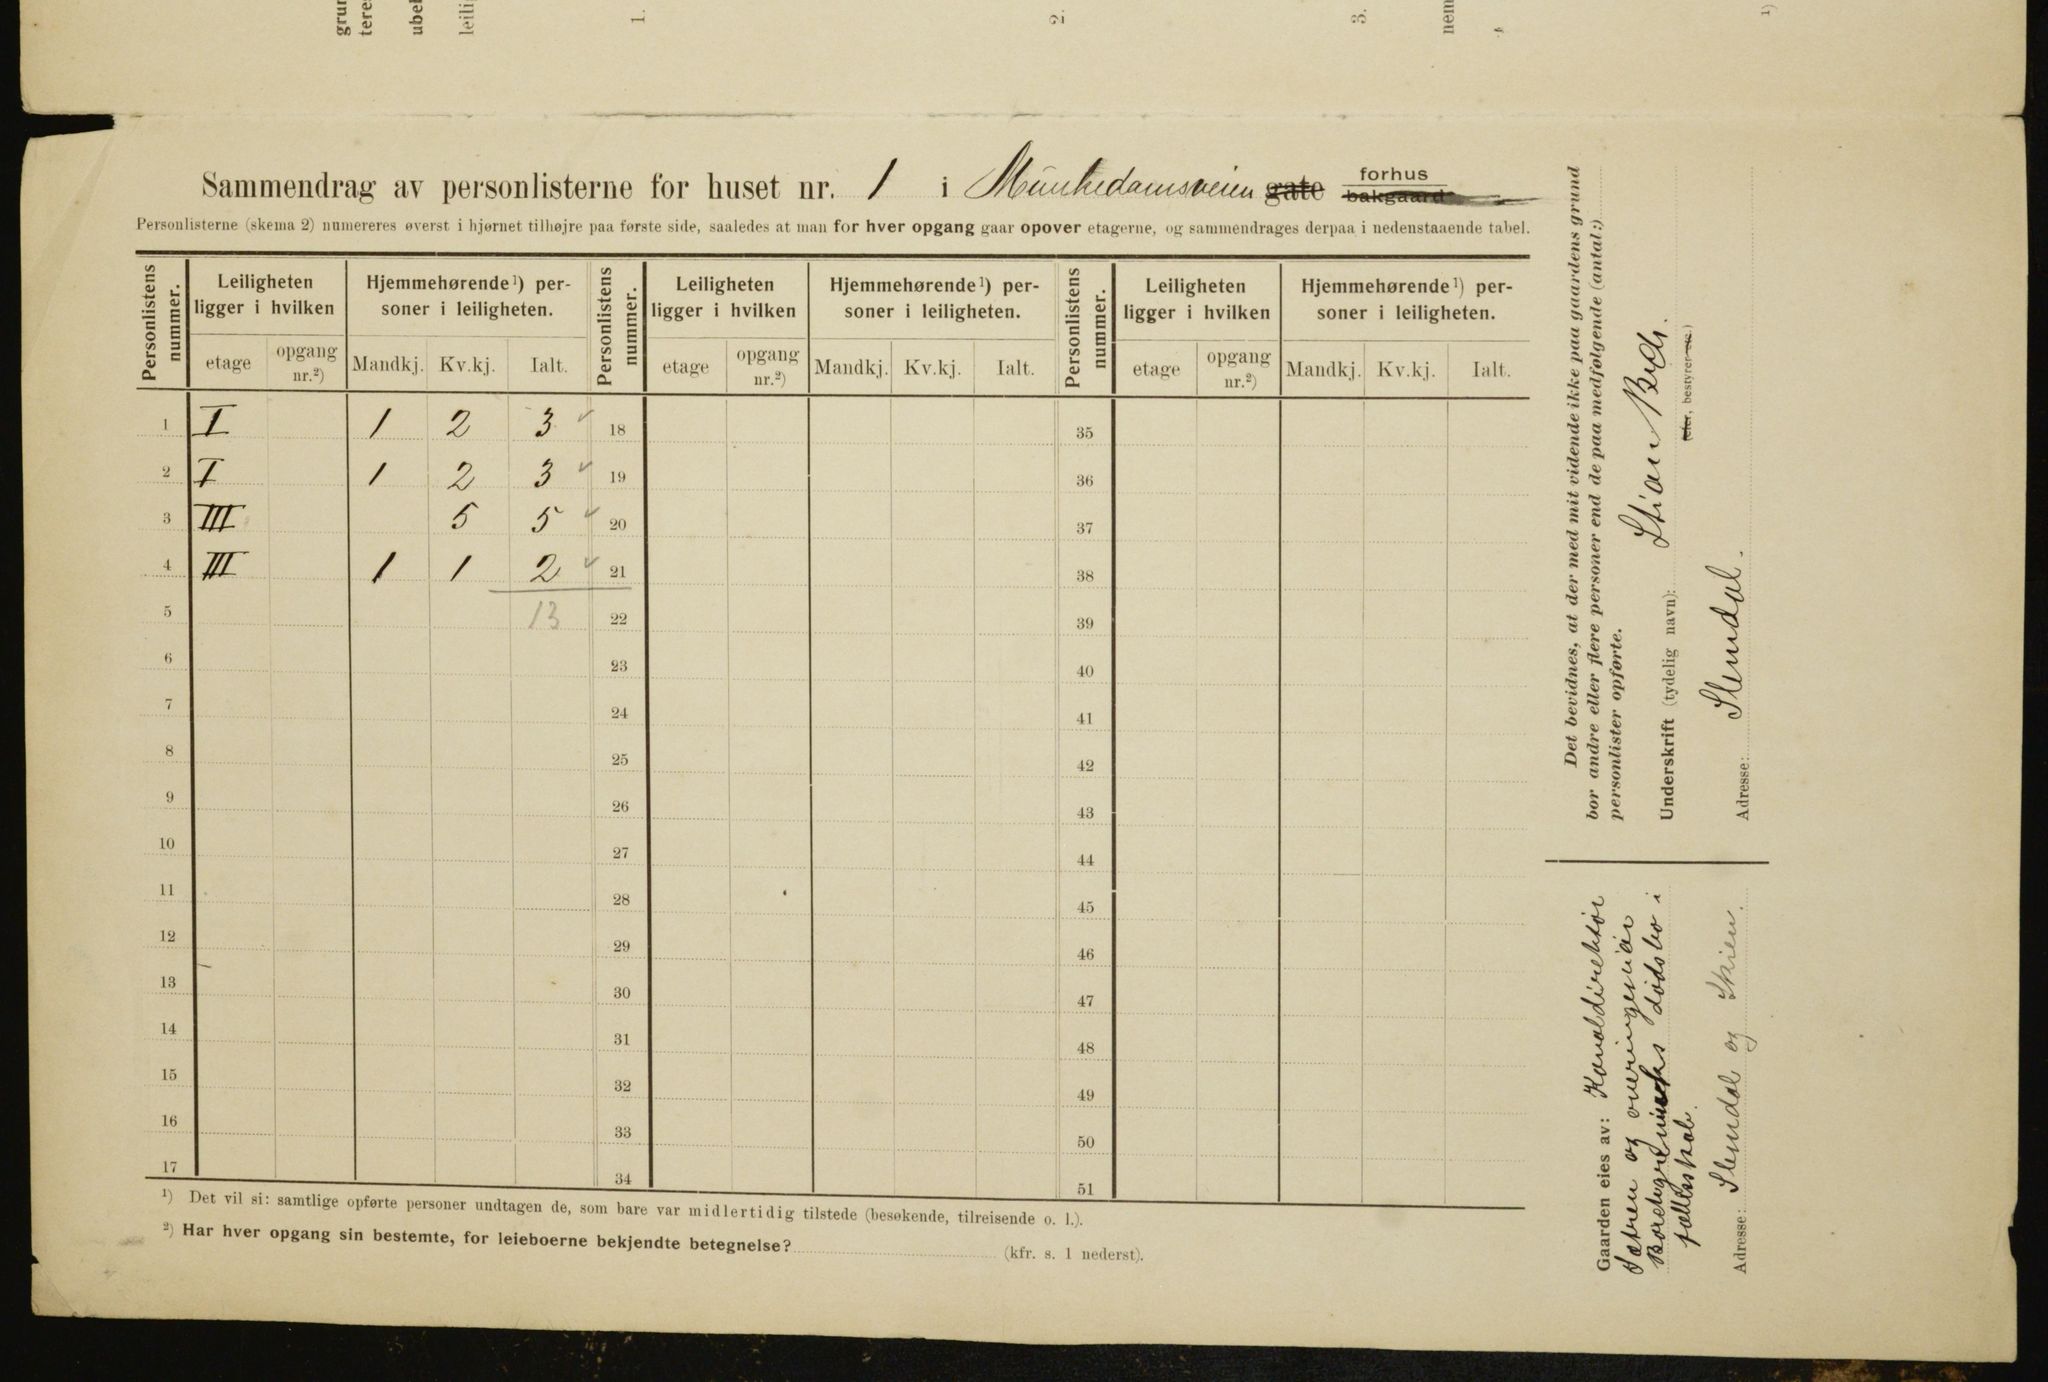 grun
teres
ubeb
leilig
1.
2.
3.
nem
1)
Sammendrag av personlisterne for huset nr. 1 i Munkedamsveien gate forhus bakgaard
Personlisterne (skema 2) numereres øverst i hjørnet tilhøjre paa første side, saaledes at man for hver opgang gaar opover etagerne, og sammendrages derpaa i nedenstaaende tabel.
Personlistens nummer. Leiligheten ligger i hvilken Hjemmehørende 1) personer i leiligheten. Personlistens nummer. Leiligheten ligger i hvilken Hjemmehørende 1) personer i leiligheten. Personlistens nummer. Leiligheten ligger i hvilken Hjemmehørende 1) personer i leiligheten.
etage opgang nr.2) Mandkj. Kv.kj. Ialt. etage opgang nr.2) Mandkj. Kv.kj. Ialt. etage opgang nr.2) Mandkj. Kv.kj. Ialt.
1 I 1 2 3 ✓ 18 35
2 I 1 2 3 ✓ 19 36
3 III 5 5 ✓ 20 37
4 III 1 1 2 ✓ 21 38
5 13 22 39
6 23 40
7 24 41
8 25 42
9 26 43
10 27 44
11 28 45
12 29 46
13 30 47
14 31 48
15 32 49
16 33 50
17 34 51
1) Det vil si: samtlige opførte personer undtagen de, som bare var midlertidig tilstede (besøkende, tilreisende o. l.).
2) Har hver opgang sin bestemte, for leieboerne bekjendte betegnelse? (kfr. s. 1 nederst).
Det bevidnes, at der med mit vidende ikke paa gaardens grund
bor andre eller flere personer end de paa medfølgende (antal:)
personlister opførte.
Underskrift (tydelig navn): Stian Bech.
(eier, bestyrer etc.)
Adresse: Slemdal.
Gaarden eies av: Kanaldirektør
Sætren og overingeniør
Borchgrevinks dødsbo i
fællesskab.
Adresse: Slemdal og Skien.